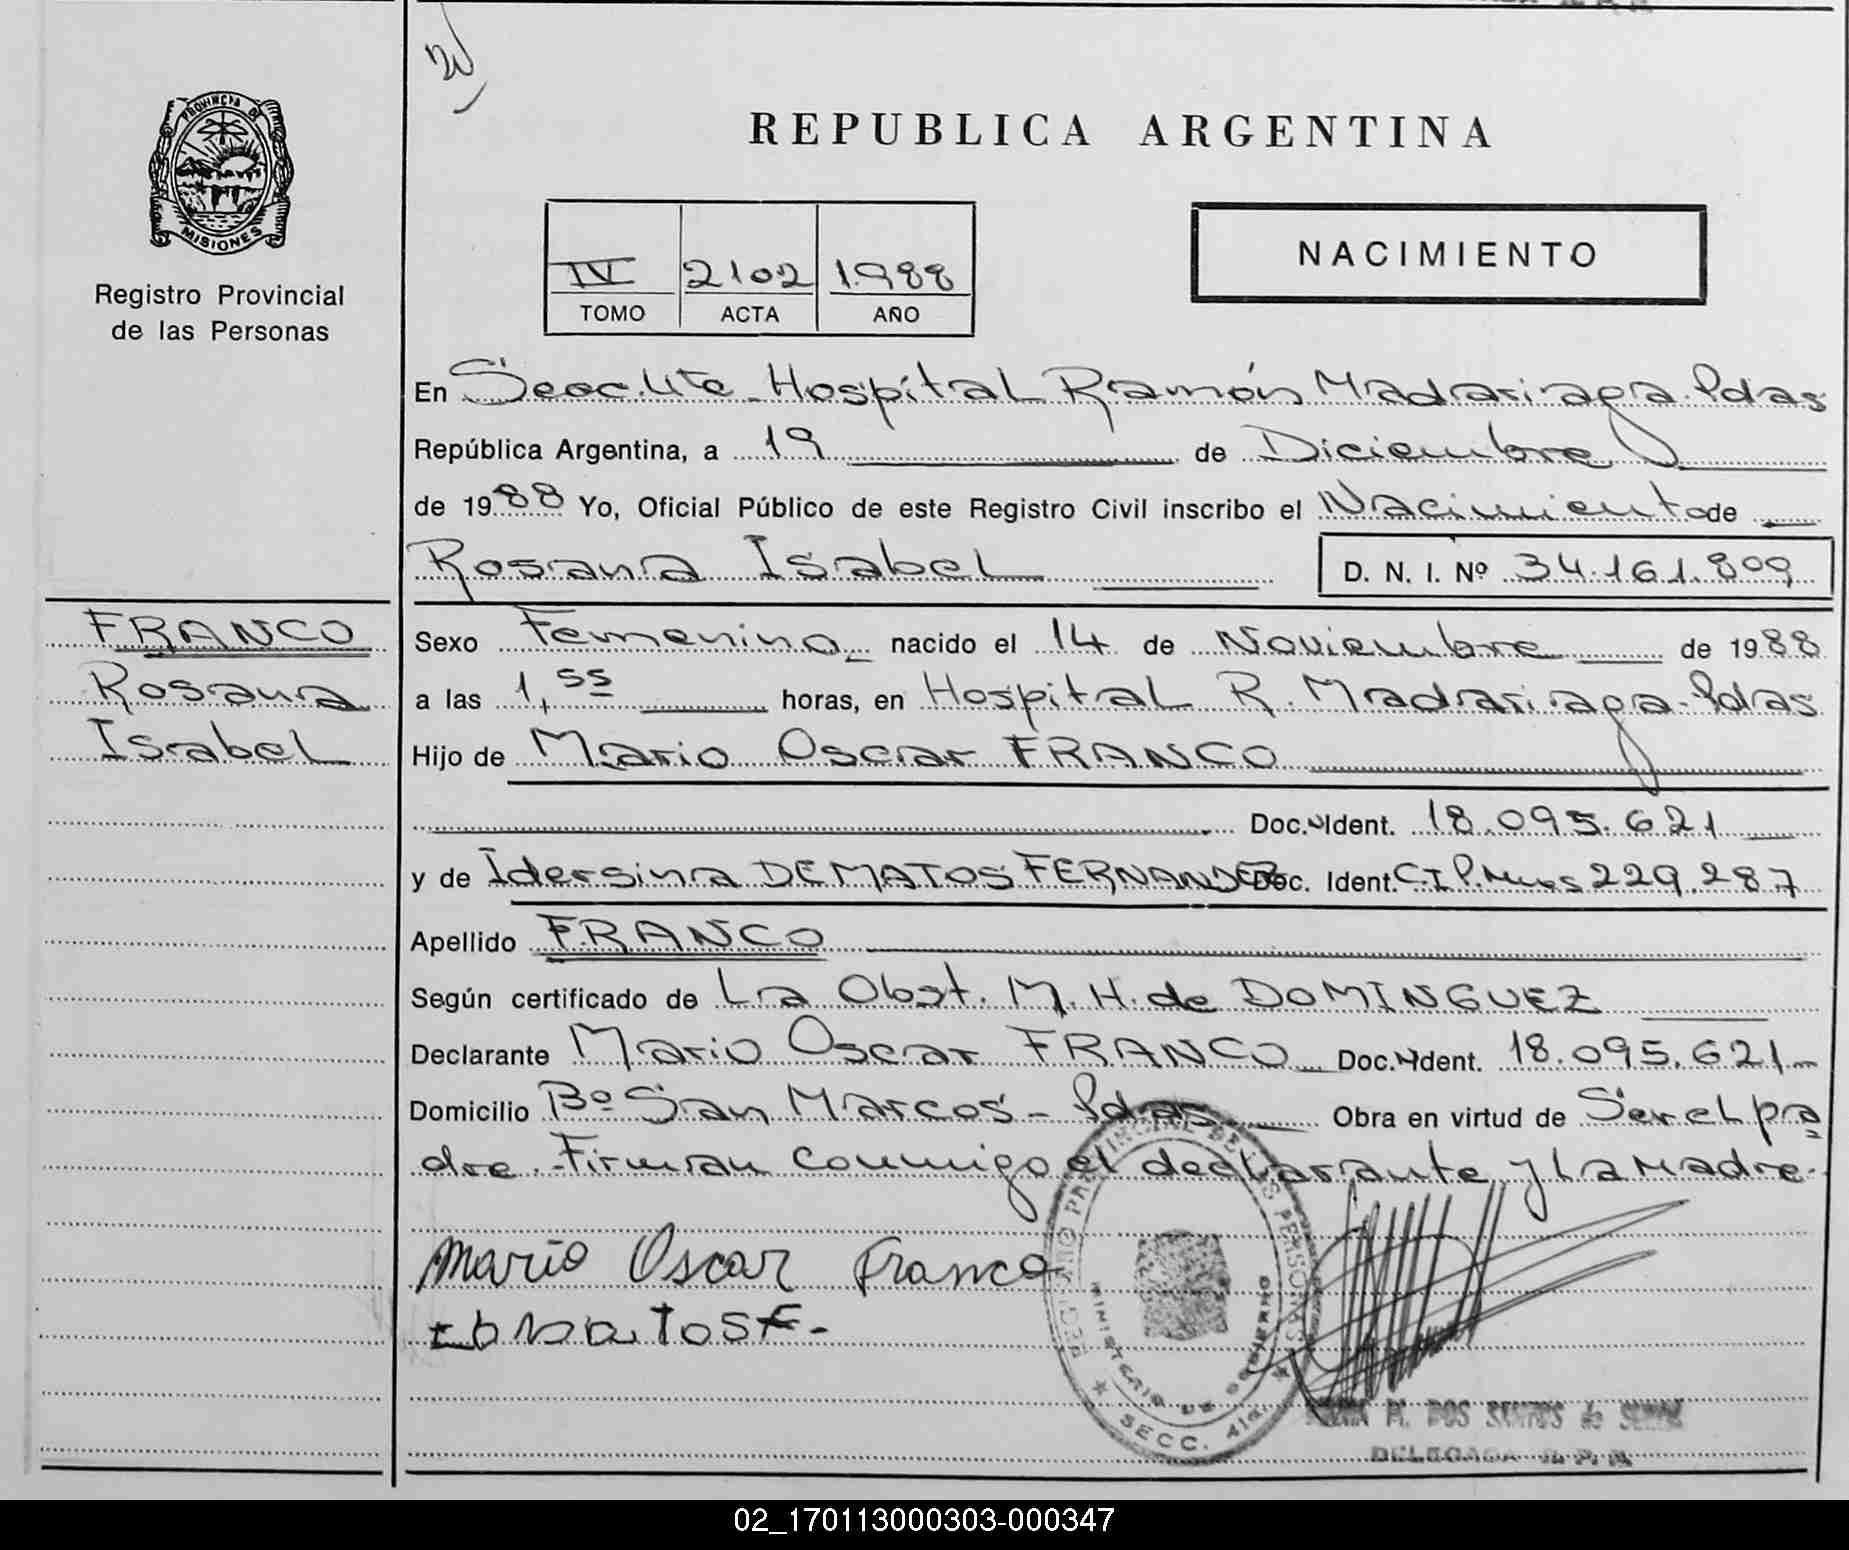 PROVINCIA DE
MISIONES
Registro Provincial
de las Personas
REPUBLICA ARGENTINA
IV 2102 1988
TOMO ACTA AÑO
NACIMIENTO
En Secc. 4ta Hospital Ramón Madariaga. Pdas
República Argentina, a 19 de Diciembre
de 1988 Yo, Oficial Público de este Registro Civil inscribo el Nacimiento de
Rosana Isabel D. N. I. Nº 34.161.809
FRANCO
Rosana
Isabel
Sexo Femenino nacido el 14 de Noviembre de 1988
a las 1,55 horas, en Hospital R. Madariaga - Pdas
Hijo de Mario Oscar FRANCO
Doc. Ident. 18.095.621
y de Idersina DE MATOS FERNANDEZ Doc. Ident. C.I.P. Mnes 229.287
Apellido FRANCO
Según certificado de La Obst. M. H. de DOMINGUEZ
Declarante Mario Oscar FRANCO Doc. Ident. 18.095.621
Domicilio Bº San Marcos - Pdas Obra en virtud de Ser el pa
dre. Firman conmigo el declarante y la Madre.
Mario Oscar Franco
MINISTERIO DE GOBIERNO
SECC. 4ta.
DOS SANTOS de
DELEGADA R. P. P.
02_170113000303-000347